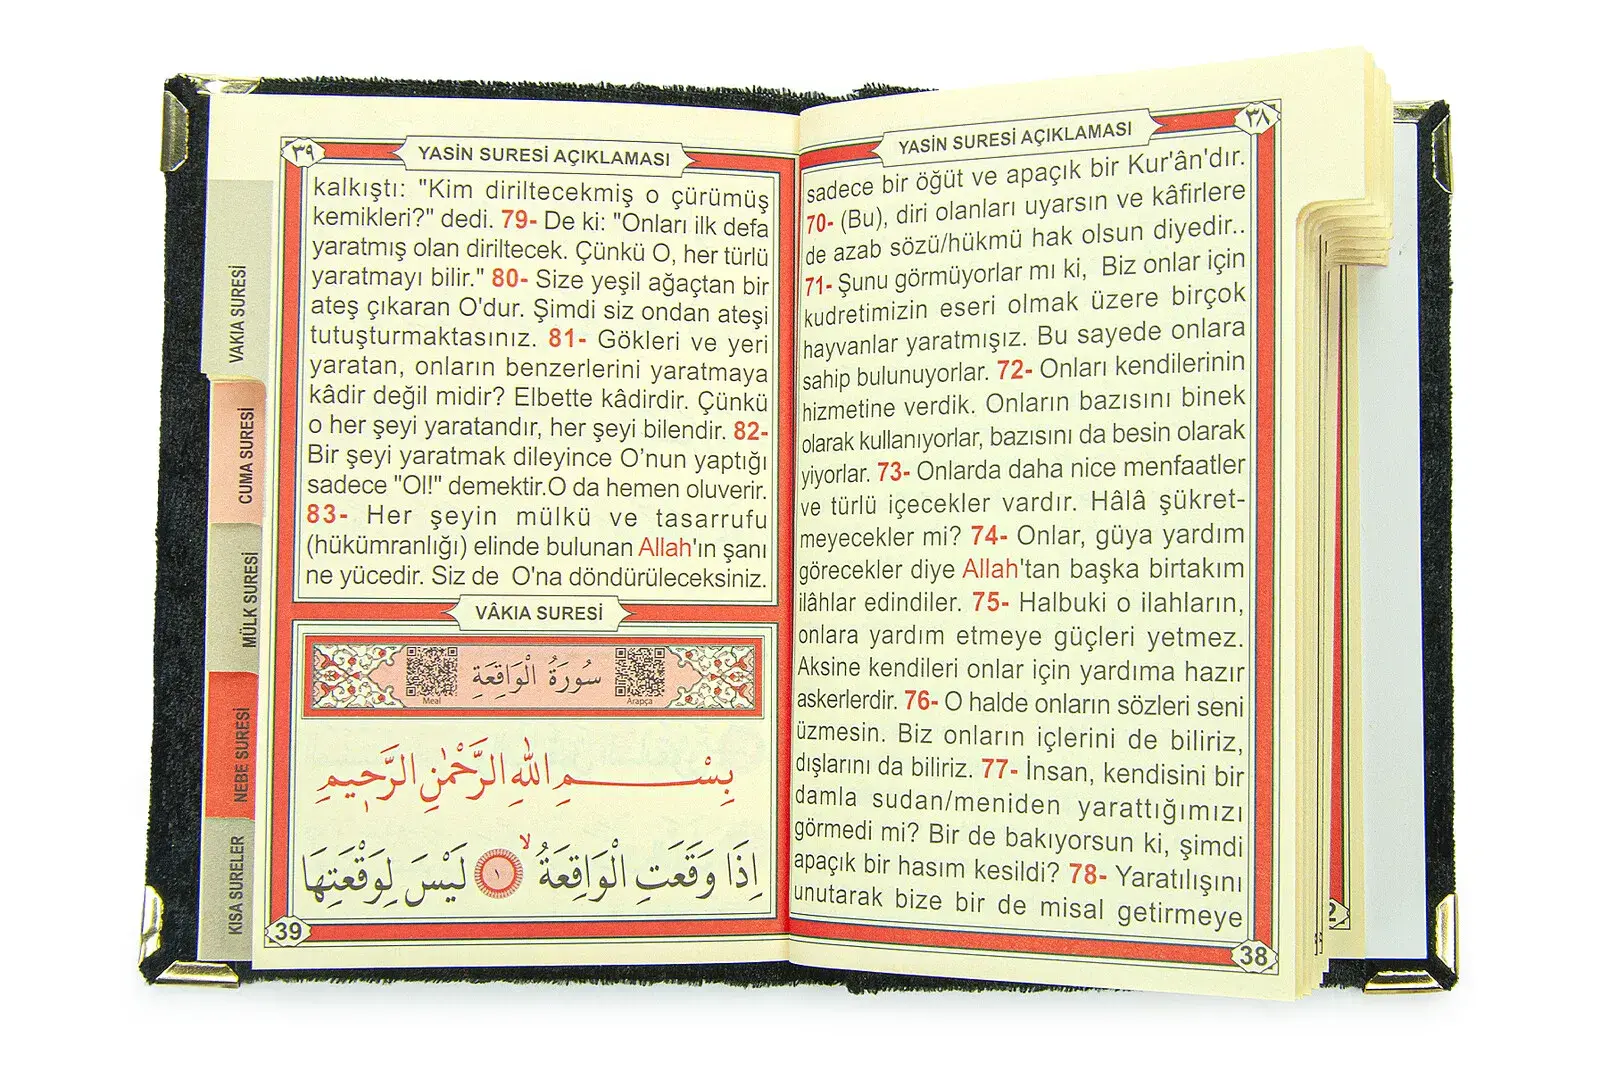 ٣٨
YASİN SURESİ AÇIKLAMASI
sadece bir öğüt ve apaçık bir Kur'ân'dır.
70- (Bu), diri olanları uyarsın ve kâfirlere
de azab sözü/hükmü hak olsun diyedir..
71- Şunu görmüyorlar mı ki, Biz onlar için
kudretimizin eseri olmak üzere birçok
hayvanlar yaratmışız. Bu sayede onlara
sahip bulunuyorlar. 72- Onları kendilerinin
hizmetine verdik. Onların bazısını binek
olarak kullanıyorlar, bazısını da besin olarak
yiyorlar. 73- Onlarda daha nice menfaatler
ve türlü içecekler vardır. Hâlâ şükret-
meyecekler mi? 74- Onlar, güya yardım
görecekler diye Allah'tan başka birtakım
ilâhlar edindiler. 75- Halbuki o ilahların,
onlara yardım etmeye güçleri yetmez.
Aksine kendileri onlar için yardıma hazır
askerlerdir. 76- O halde onların sözleri seni
üzmesin. Biz onların içlerini de biliriz,
dışlarını da biliriz. 77- İnsan, kendisini bir
damla sudan/meniden yarattığımızı
görmedi mi? Bir de bakıyorsun ki, şimdi
apaçık bir hasım kesildi? 78- Yaratılışını
unutarak bize bir de misal getirmeye
38
٣٩
YASİN SURESİ AÇIKLAMASI
kalkıştı: "Kim diriltecekmiş o çürümüş
kemikleri?" dedi. 79- De ki: "Onları ilk defa
yaratmış olan diriltecek. Çünkü O, her türlü
yaratmayı bilir." 80- Size yeşil ağaçtan bir
ateş çıkaran O'dur. Şimdi siz ondan ateşi
tutuşturmaktasınız. 81- Gökleri ve yeri
yaratan, onların benzerlerini yaratmaya
kâdir değil midir? Elbette kâdirdir. Çünkü
o her şeyi yaratandır, her şeyi bilendir. 82-
Bir şeyi yaratmak dileyince O'nun yaptığı
sadece "Ol!" demektir.O da hemen oluverir.
83- Her şeyin mülkü ve tasarrufu
(hükümranlığı) elinde bulunan Allah'ın şanı
ne yücedir. Siz de O'na döndürüleceksiniz.
VÂKIA SURESİ
سُورَةُ الْوَاقِعَةِ
Meal
Arapça
بِسْمِ اللهِ الرَّحْمٰنِ الرَّحِيمِ
إِذَا وَقَعَتِ الْوَاقِعَةُ ۙ ١ لَيْسَ لِوَقْعَتِهَا
39
VAKIA SURESİ
CUMA SURESİ
MÜLK SURESİ
NEBE SURESİ
KISA SURELER